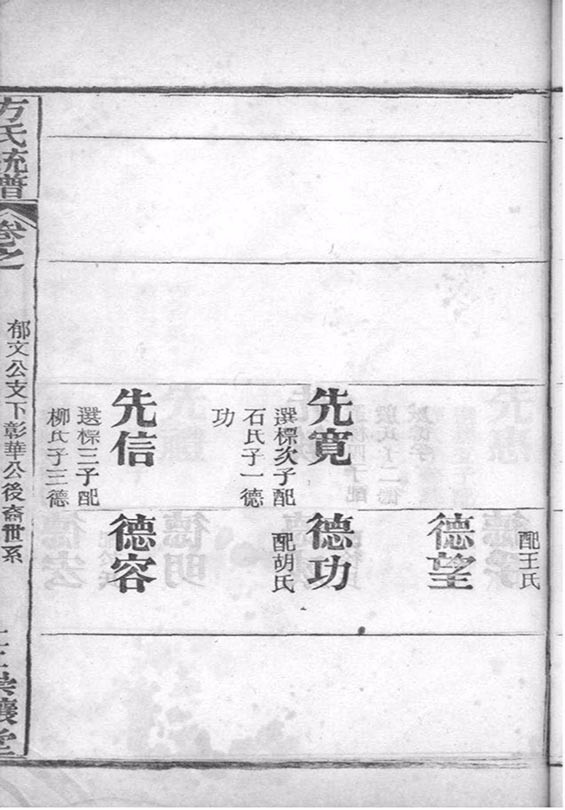 先寬
選標次子配
石氏子一德
功
先信
選標三子配
柳氏子三德
配王氏
德望
德功
配胡氏
德容
方氏統譜
卷之
郁文公支下彰華公後裔世系